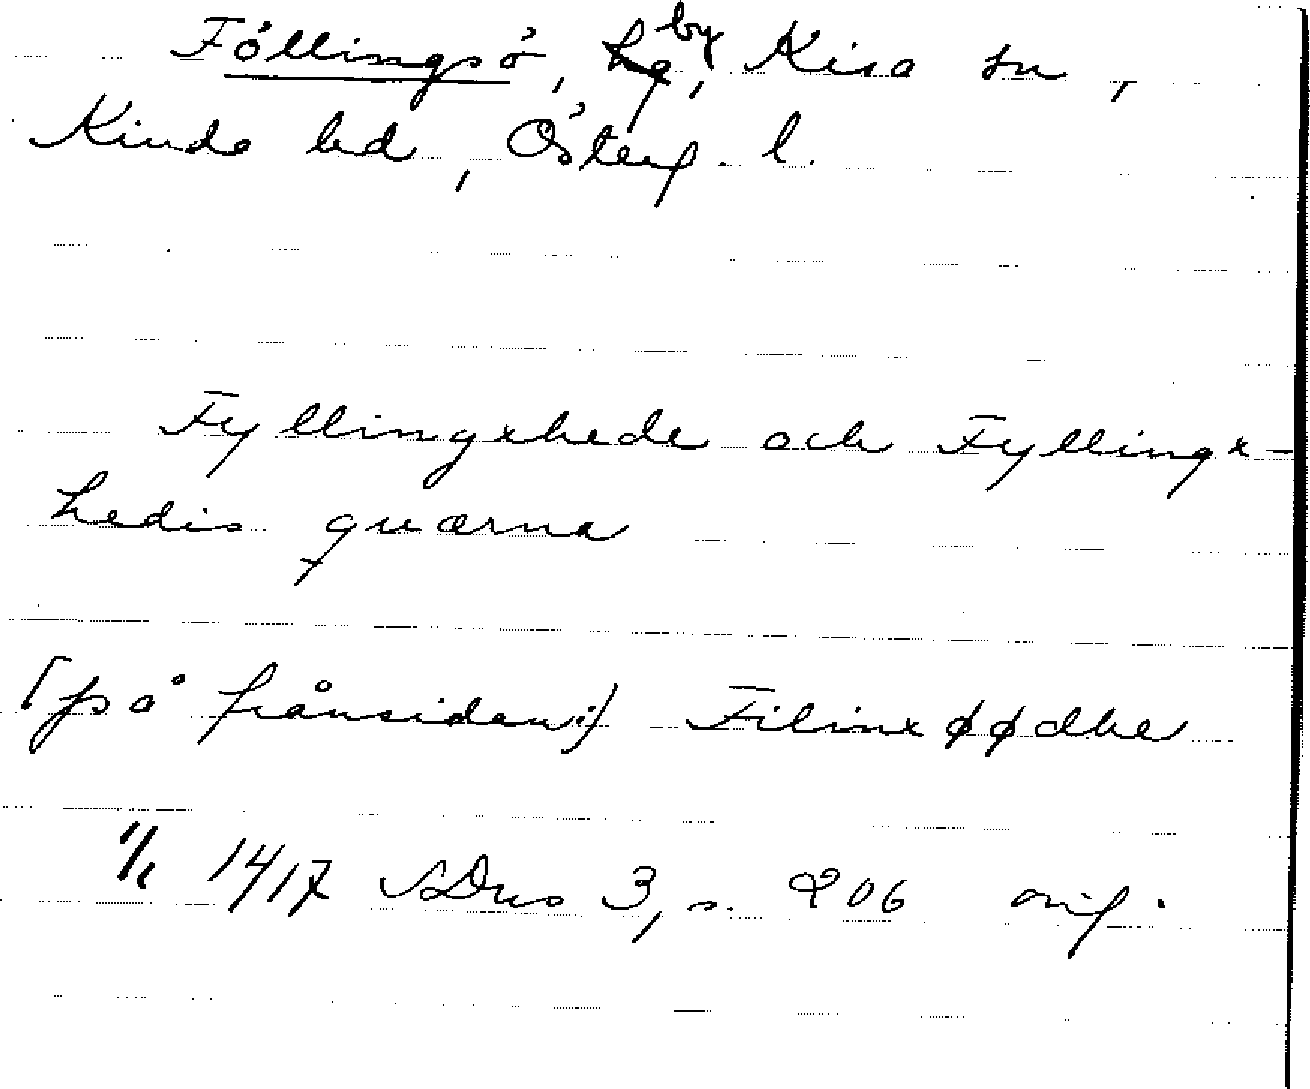 Föllingsö, by, Kisa sn,
Kinda hd, Österg. l.
Fyllingxhede och Fyllingx-
hedis quærna
[på frånsidan:] Filinxøødhe
1/1 1417 SDns 3, s. 206 orig.